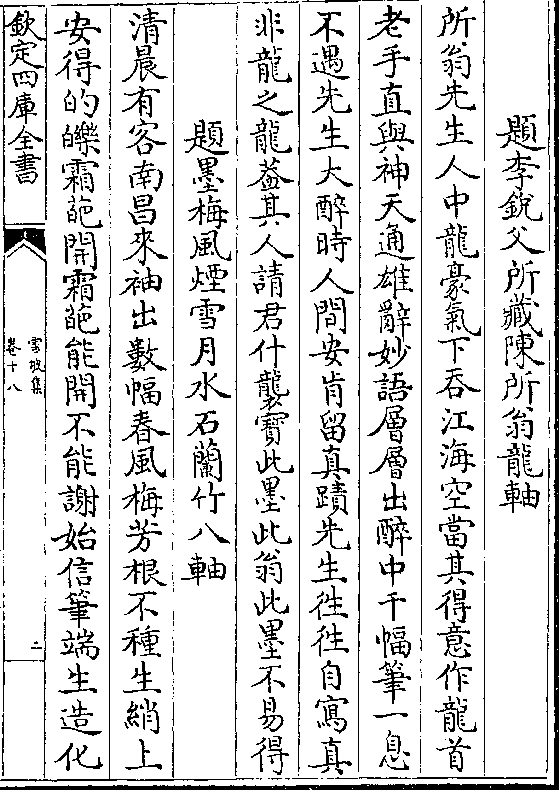 題李銳父所藏陳所翁龍軸
所翁先生人中龍豪氣下吞江海空當其得意作龍首
老手直與神天通雄辭妙語層層出醉中千幅筆一息
不遇先生大醉時人間安肯留真蹟先生往往自寫真
非龍之龍葢其人請君什襲寳此墨此翁此墨不易得
題墨梅風煙雪月水石蘭竹八軸
清晨有客南昌來袖出數幅春風梅芳根不種生綃上
安得的皪霜葩開霜葩能開不能謝始信筆端生造化
欽定四庫全書
雪坡集
卷十八
二